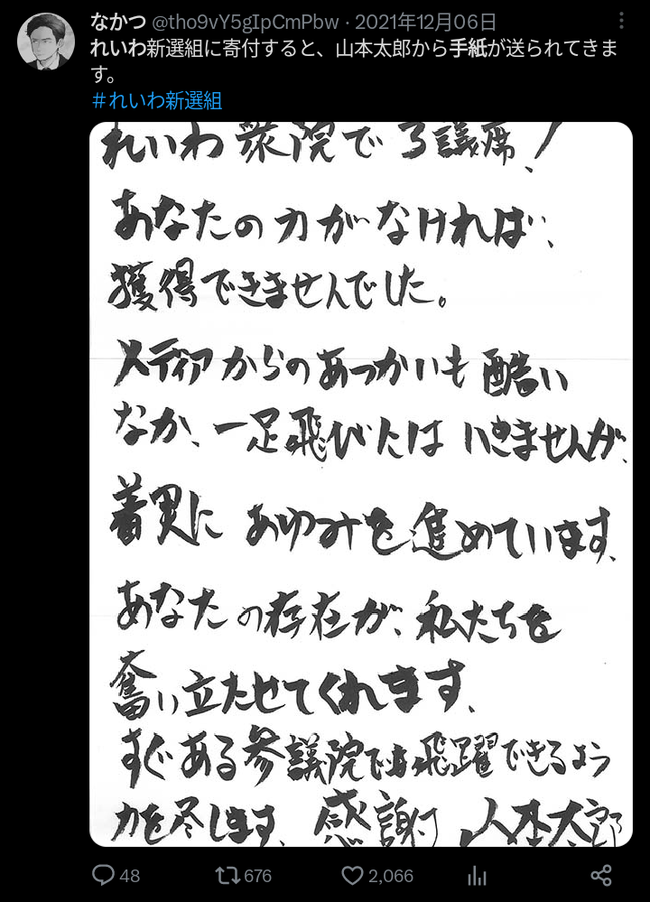 なかつ @tho9vY5gIpCmPbw · 2021年12月06日
れいわ新選組に寄付すると、山本太郎から手紙が送られてきま
す。
#れいわ新選組
れいわ衆院で3議席!
あなたの力がなければ、
獲得できませんでした。
メディアからのあつかいも酷い
なか、一足飛びとは いきませんが、
着実に あゆみを進めています、
あなたの存在が、私たちを
奮い立たせてくれます、
すぐある参議院でも飛躍できるよう
力を尽します、感謝 山本太郎
48 676 2,066